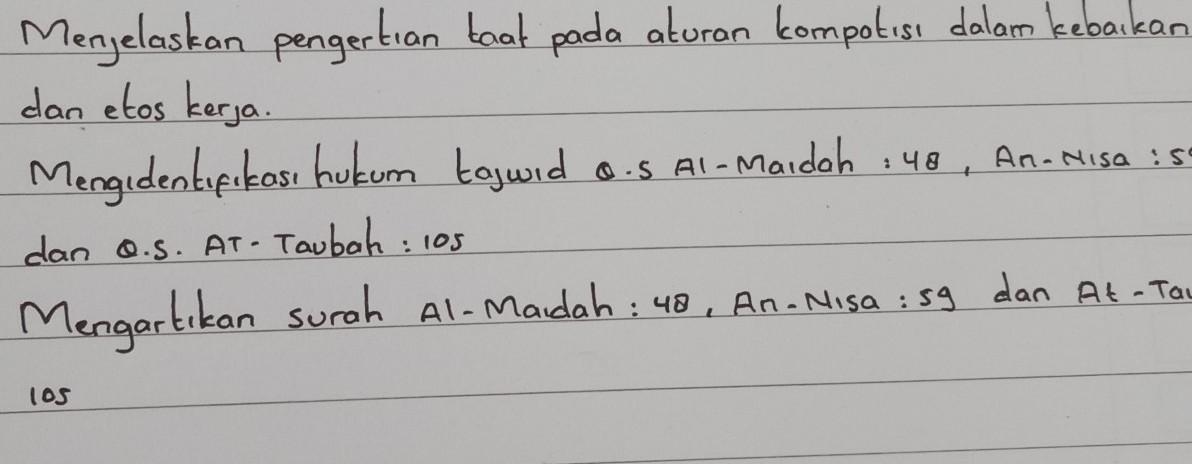 Menjelaskan pengertian taat pada aturan kompotisi dalam kebaikan
dan etos kerja.
Mengidentifikasi hukum tajwid Q.S Al-Maidah : 48, An-Nisa : 59
dan Q.S. AT-Taubah : 105
Mengartikan surah Al-Maidah : 48, An-Nisa : 59 dan At-Tau
105